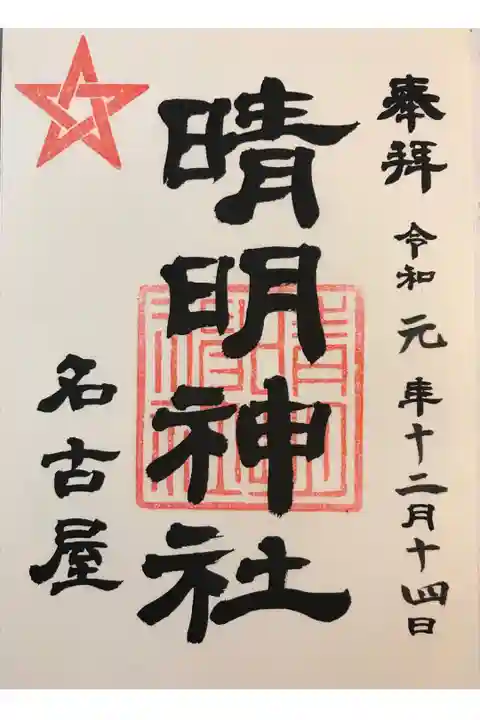 奉拜 令和元年十二月十四日
晴明神社
名古屋